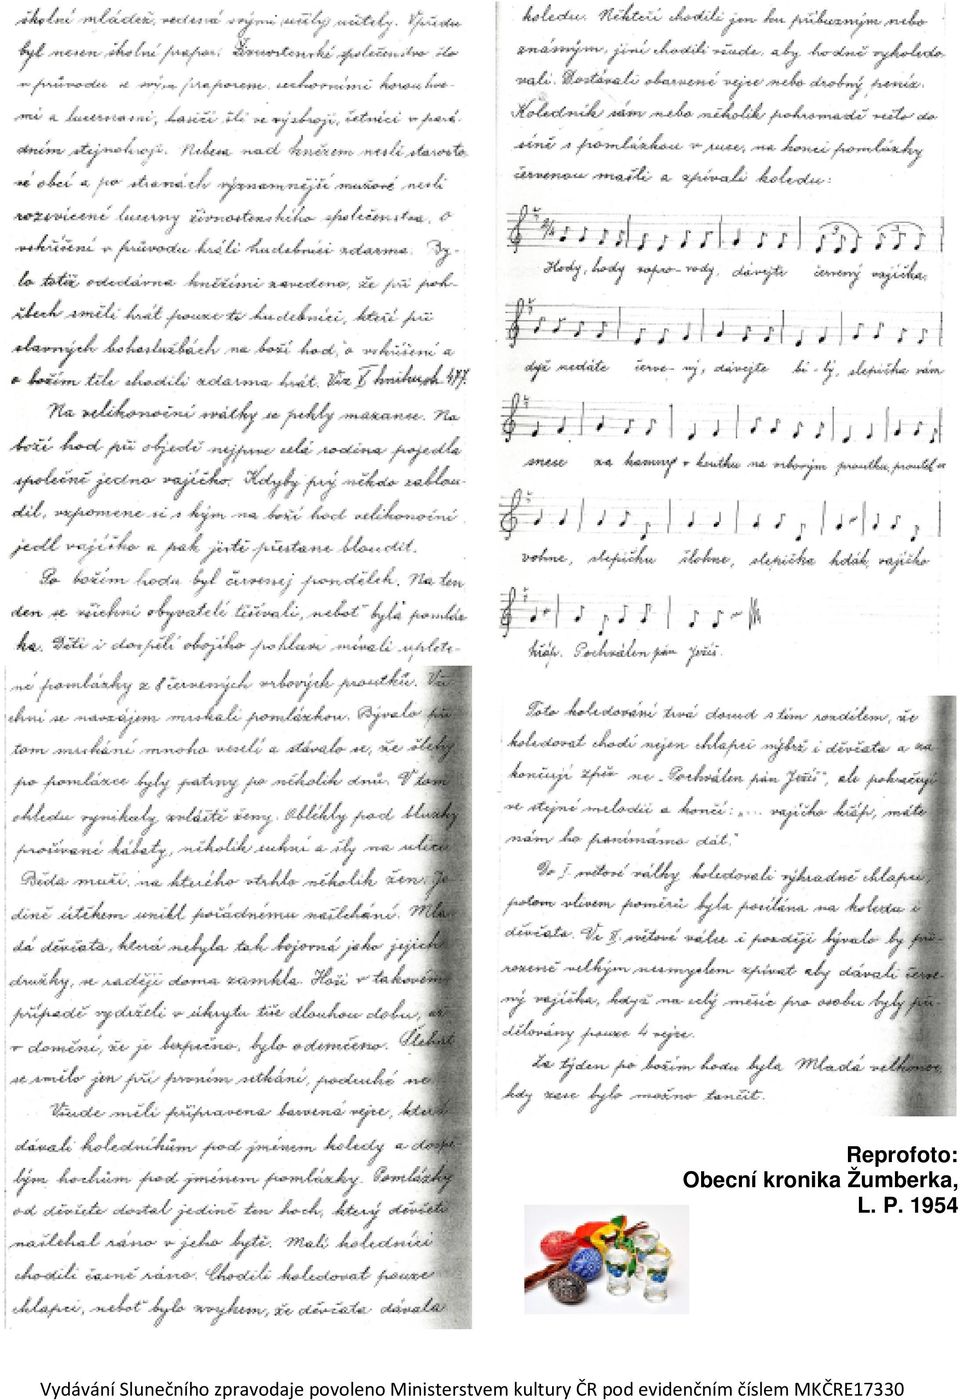 školní mládež, vedená svými učiteli učitely. Vpředu
byl nesen školní prapor. Živnostenské společenstvo šlo
v průvodu se svým praporem, cechovními korouhve-
mi a lucernami, hasiči šli ve výzbroji, četníci v parád-
ním stejnokroji. Nebesa nad knězem nesli starosto-
vé obcí a po stranách významnější mužové nesli
rozsvícené lucerny živnostenského společenstva. O
vzkříšení v průvodu hráli hudebníci zdarma. By-
lo totiž odedávna kněžími zavedeno, že při poh-
řbech směli hrát pouze ti hudebníci, kteří při
slavných bohoslužbách na boží hod, o vzkříšení a
o božím těle chodili zdarma hrát. Viz I knihu str 477.
Na velikonoční svátky se pekly mazance. Na
boží hod při objedě nejprve celá rodina pojedla
společně jedno vajíčko. Kdyby prý někdo zablou-
dil, vzpomene si s kým na boží hod velikonoční
jedl vajíčko a pak jistě přestane bloudit.
Po božím hodu byl červenej pondělek. Na ten
den se všichni obyvatelé těšívali, neboť byla pomláz-
ka. Děti i dospělí obojího pohlaví mívali uplete-
né pomlázky z 8 červených vrbových proutků. Vši-
chni se navzájem mrskali pomlázkou. Bývalo při
tom mrskání mnoho veselí a stávalo se, že šlehy
po pomlázce byly patrny po několik dnů. V tom
ohledu vynikaly zvláště ženy. Oblékly pod bluzky
prošívané kabáty, několik sukní a šly na ulici.
Běda muži, na kterého vtrhlo několik žen. Je-
dině útěkem unikl pořádnému našlehání. Mla-
dá děvčata, která nebyla tak bojovná jako jejich
družky, se raději doma zamkla. Hoši v takovém
případě vydrželi v úkrytu tiše dlouhou dobu, až
v domění, že je bezpečno, bylo odemčeno. Šlehat
se smělo jen při prvním setkání, podruhé ne.
Všude měli připravena barvená vejce, která
dávali koledníkům pod jménem koledy a dospě-
lým hochům pod jménem pomlázky. Pomlázky
od děvčete dostal jedině ten hoch, který děvče
našlehal ráno v jeho bytě. Malí koledníci
chodili časně ráno. Chodili koledovat pouze
chlapci, neboť bylo zvykem, že děvčata dávala
koledu. Někteří chodili jen ku příbuzným nebo
známým, jiní chodili všude, aby hodně vykoledo-
vali. Dostávali obarvené vejce nebo drobný peníz.
Koledník sám nebo několik pohromadě vešlo do
síně s pomlázkou v ruce, na konci pomlázky
červenou mašli a zpívali koledu:
2/4 3
Hody, hody dopro-vody, dávejte červený vajíčka,
dyž nedáte červe-ný, dávejte bí-lý, slepička vám
snese za kamny v koutku na vrbovým proutku, proutek se
vohne, slepičku šlohne, slepička kdák, vajíčko
křáp. Pochválen pán Ježíš.
Toto koledování trvá dosud s tím rozdílem, že
koledovat chodí nejen chlapci nýbrž i děvčata a za-
končují zpěv ne „Pochválen pán Ježíš", ale pokračují
ve stejné melodii a končí: „... vajíčko křáp, máte
nám ho panímámo dát."
Do I. světové války koledovali výhradně chlapci,
potom vlivem poměrů byla posílána na koledu i
děvčata. Ve II. světové válce i později bývalo by při-
rozeně velkým nesmyslem zpívat aby dávali červe-
ný vajíčka, když na celý měsíc pro osobu byly při-
dělovány pouze 4 vejce.
Za týden po božím hodu byla Mladá velkonoce,
kdy zase bylo možno tančit.
Reprofoto:
Obecní kronika Žumberka,
L. P. 1954
Vydávání Slunečního zpravodaje povoleno Ministerstvem kultury ČR pod evidenčním číslem MKČRE17330